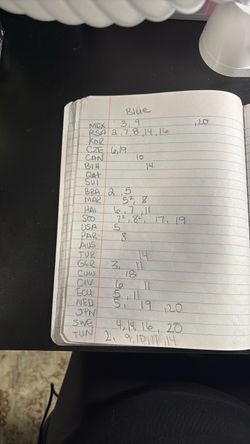 Blue
MEX 3, 9 ,20
RSA 2,7,8,14,16
KOR
CZE 6,19
CAN 10
BIH 14
Qat
SUI
BRA 2, 5
MAR 5², 8
HAI 6, 7, 11
SCO 7², 8², 17, 19
USA 5
PAR 8
AUS
TUR 14
GER 3, 11
CUW 18
CIV 6, 11
ECU 5, 11
NED 5, 19 ,20
JPN
SWE 4,14,16, 20
TUN 2, 9,10,11,14